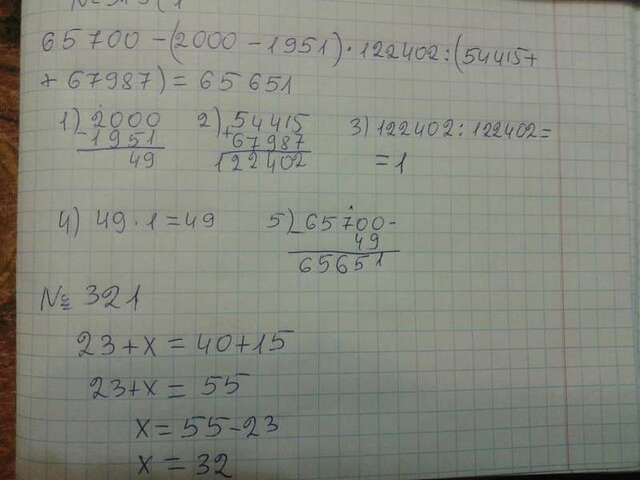 65700-(2000-1951)·122402:(54415+
+67987)=65651
1) 2000 2) 54415 3) 122402:122402=
- 1951 + 67987 =1
49 122402
4) 49·1=49 5) 65700-
- 49
65651
№ 321
23+x=40+15
23+x=55
x=55-23
x=32